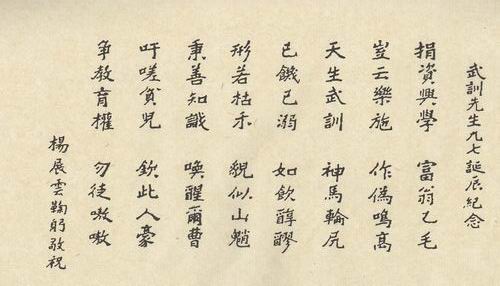 武訓先生九七誕辰紀念
捐資興學 富翁乙毛
豈云樂施 作偽鳴高
天生武訓 神馬輪尻
已饑已溺 如飲醇醪
形若枯禾 貌似山魈
秉善知識 喚醒爾曹
吁嗟貧兒 欽此人豪
爭教育權 勿徒嗷嗷
楊展雲鞠躬敬祝